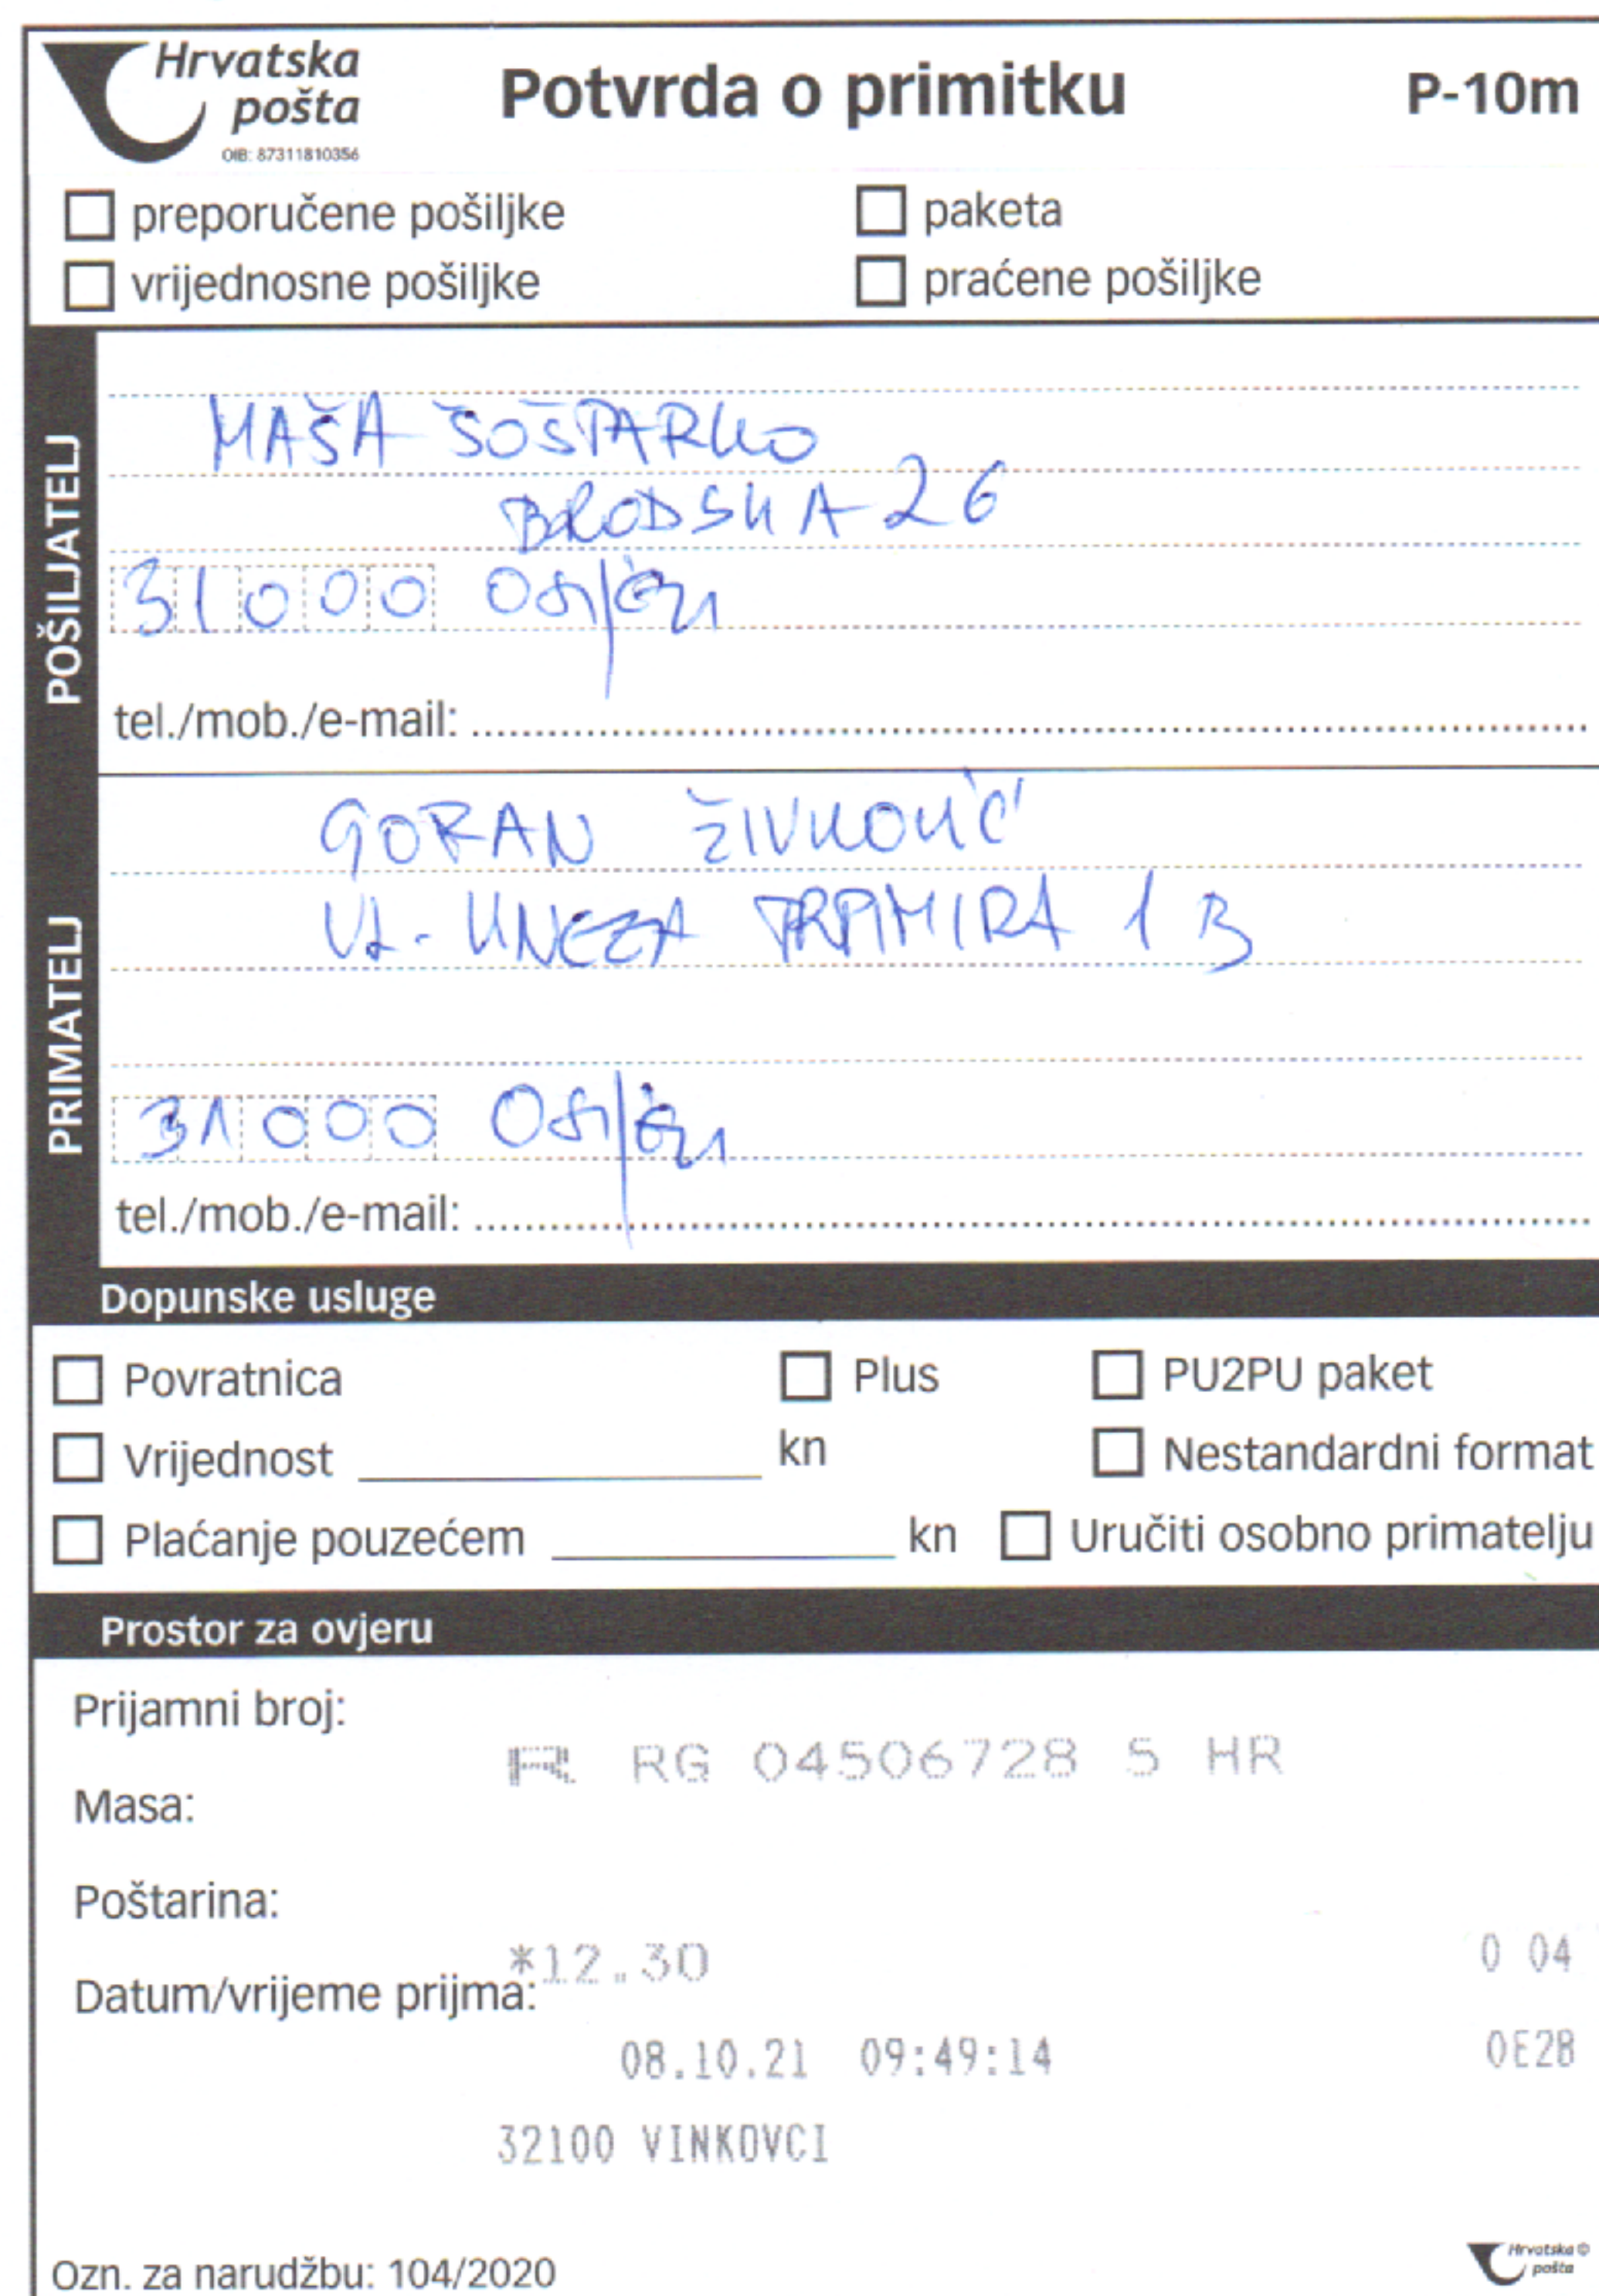 Hrvatska
pošta
OIB: 87311810356
Potvrda o primitku
P-10m
preporučene pošiljke
paketa
vrijednosne pošiljke
praćene pošiljke
POŠILJATELJ
MAŠA ŠOŠTARKO
BRODSKA 26
31000 Osijek
tel./mob./e-mail:
PRIMATELJ
GORAN ŽIVKOVIĆ
UL. KNEZA TRPIMIRA 1 B
31000 Osijek
tel./mob./e-mail:
Dopunske usluge
Povratnica
Plus
PU2PU paket
Vrijednost kn
Nestandardni format
Plaćanje pouzećem kn
Uručiti osobno primatelju
Prostor za ovjeru
Prijamni broj:
R RG 04506728 5 HR
Masa:
Poštarina:
*12.30 0 04
Datum/vrijeme prijma:
08.10.21 09:49:14 0E2B
32100 VINKOVCI
Ozn. za narudžbu: 104/2020
Hrvatska ©
pošta